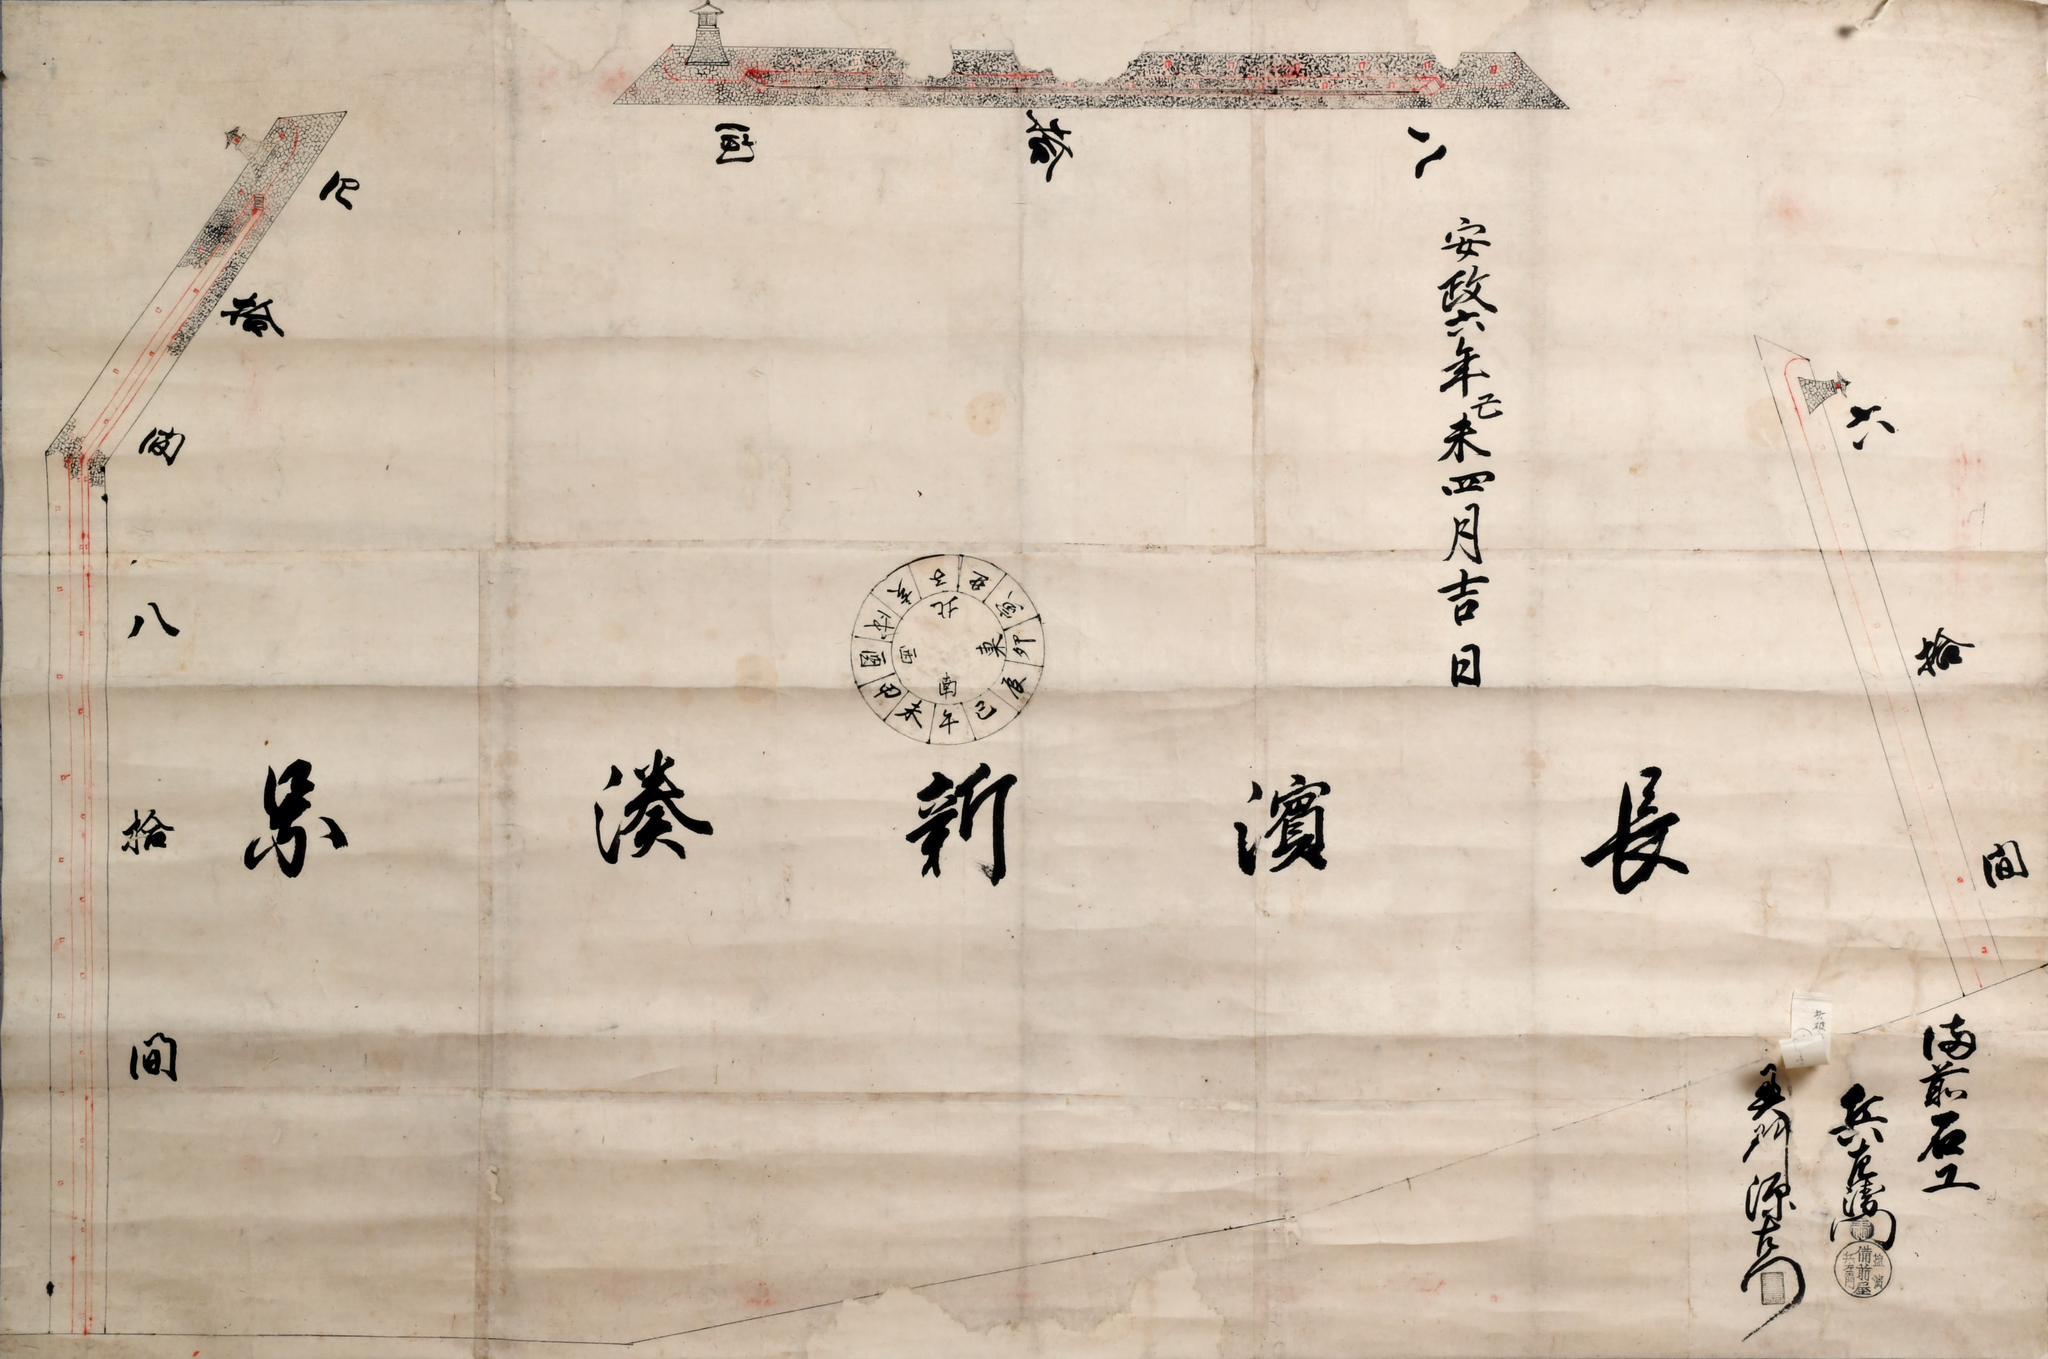 長濱新湊景
安政六年己未四月吉日
八拾間
六拾間
四拾間
八拾間
子丑寅卯辰巳午未申酉戌亥
北東南西
備前石工
兵左衛門
備前屋